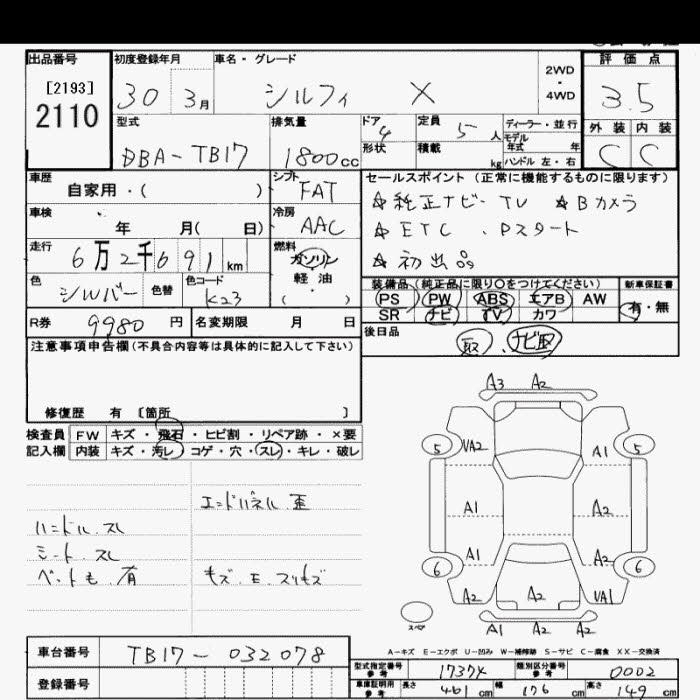 出品番号
[2193]
2110
初度登録年月
30 3月
車名・グレード
シルフィ X
2WD
・
4WD
評価点
3.5
型式
DBA-TB17
排気量
1800cc
ドア 4
形状
定員 5人
積載 kg
ディーラー・並行
モデル年式 年
ハンドル 左・右
外装 内装
C C
車歴
自家用・( )
シフト
FAT
車検
年 月( 日)
冷房
AAC
走行
6万2千691km
燃料
ガソリン
軽油
( ・ )
色
シルバー
色替
色コード
K23
R券 9980円
名変期限 月 日
セールスポイント(正常に機能するものに限ります)
☆純正ナビ・TV ☆Bカメラ
☆ETC、Pスタート
☆初出品
装備品(純正品に限り○をつけてください)
新車保証書
PS PW ABS エアB AW
SR ナビ TV カワ
有・無
後日品
取 ナビ取
注意事項申告欄(不具合内容等は具体的に記入して下さい)
修復歴 有 〔箇所 〕
検査員記入欄
FW キズ・飛石・ヒビ割・リペア跡・×要
内装 キズ・汚レ・コゲ・穴・スレ・キレ・破レ
エンドパネル歪
ハンドル.スレ
シート.スレ
ペット毛.有
キズ.E.スリキズ
A3 A2
5 VA2 A1 5
A1 A2
A1 A2
6 A2 A2 VA1 6
スペア
A1 A2 A2
A-キズ E-エクボ U-凹み W-補修跡 S-サビ C-腐食 XX-交換済
車台番号
TB17-032078
登録番号
型式指定番号
参考
類別区分番号
参考
0002
車庫証明用
参考
長さ 461cm 幅 176cm 高さ 149cm